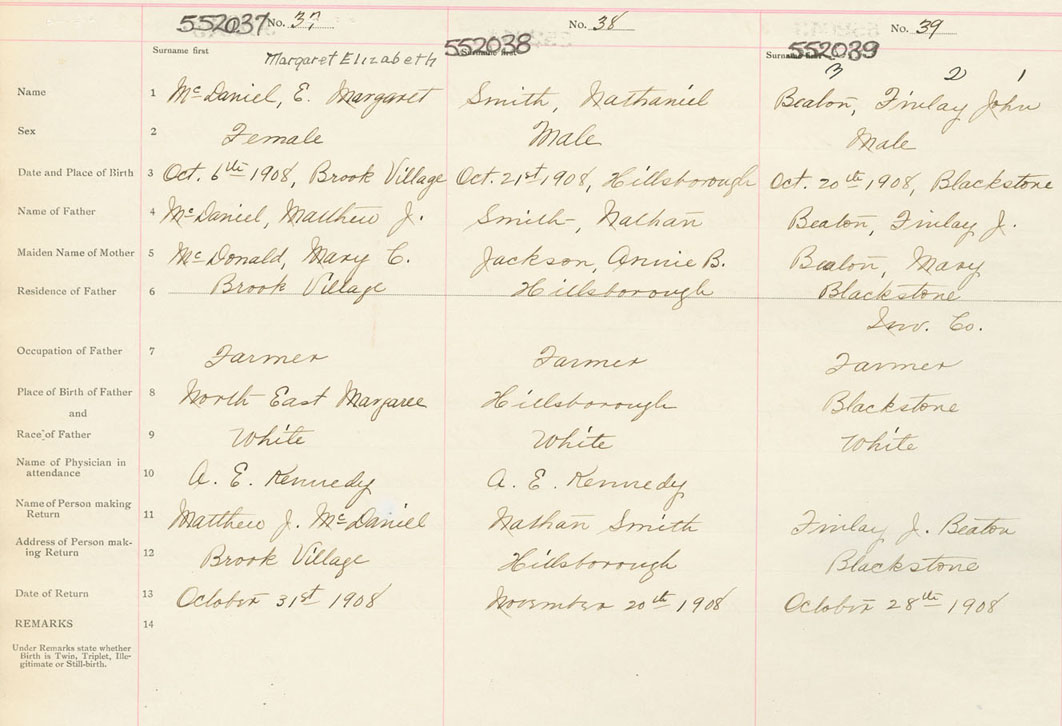 552037 No. 37
552038 No. 38
552039 No. 39
Surname first
Surname first
Surname first
Margaret Elizabeth
3 2 1
Name 1 McDaniel, E. Margaret Smith, Nathaniel Beaton, Finlay John
Sex 2 Female Male Male
Date and Place of Birth 3 Oct. 6th 1908, Brook Village Oct. 21st 1908, Hillsborough Oct. 20th 1908, Blackstone
Name of Father 4 McDaniel, Matthew J. Smith, Nathan Beaton, Finlay J.
Maiden Name of Mother 5 McDonald, Mary C. Jackson, Annie B. Beaton, Mary
Residence of Father 6 Brook Village Hillsborough Blackstone
Inv. Co.
Occupation of Father 7 Farmer Farmer Farmer
Place of Birth of Father 8 North East Margaree Hillsborough Blackstone
and
Race of Father 9 White White White
Name of Physician in
attendance 10 A. E. Kennedy A. E. Kennedy
Name of Person making
Return 11 Matthew J. McDaniel Nathan Smith Finlay J. Beaton
Address of Person mak-
ing Return 12 Brook Village Hillsborough Blackstone
Date of Return 13 October 31st 1908 November 20th 1908 October 28th 1908
REMARKS 14
Under Remarks state whether
Birth is Twin, Triplet, Ille-
gitimate or Still-birth.